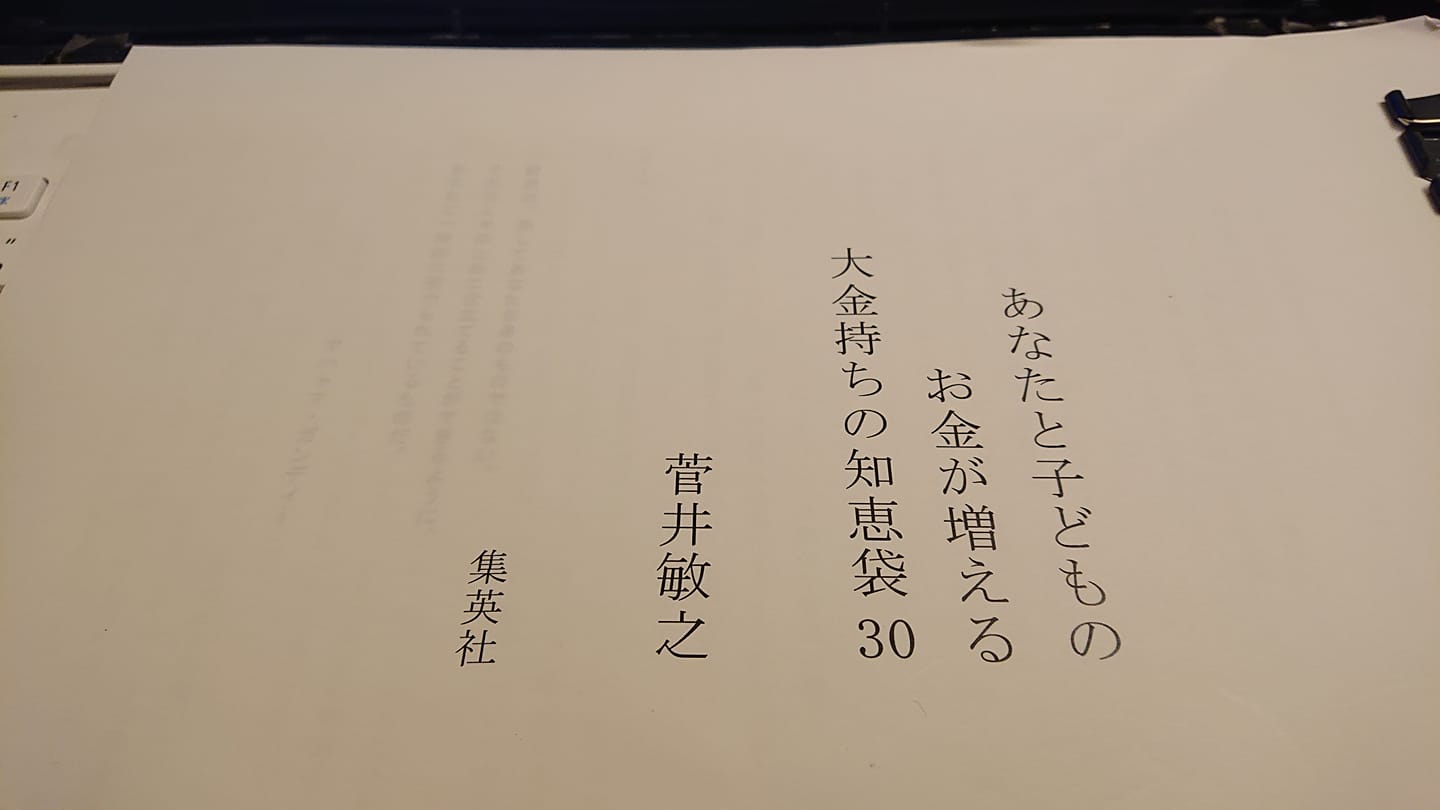 あなたと子どもの
お金が増える
大金持ちの知恵袋30
菅井敏之
集英社
F1